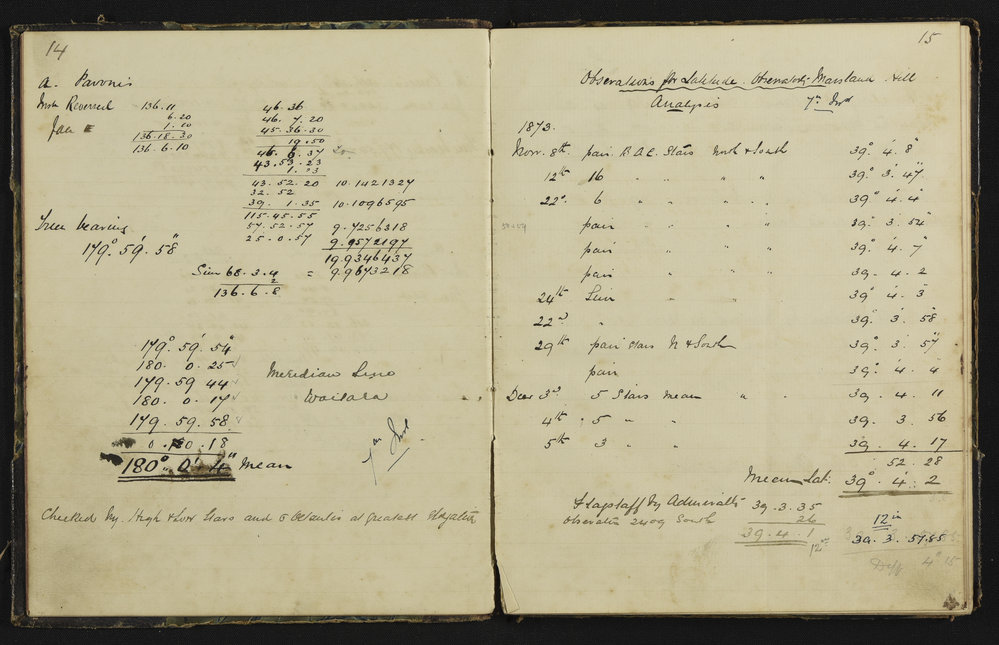 14
α. Pavonis
Inst Reversed 136.11
6.20
1.00
136.18.30
136.6.10
46.36
46.7.20
45.36.30
19.50
46.6.37
43.53.23
1.23
43.52.20 10.1421327
32.52
39.1.35 10.1096595
115.45.55
57.52.57 9.7256318
25.0.57 9.9572197
19.9346437
Sin 68.3.4 = 9.9673218
2
136.6.8
True bearing
179° 59' 58"
179° 59' 54"
180. 0. 25
179. 59 44
180. 0. 17
179. 59. 58
0. 0. 18
180° 0' 4" Mean
Meridian Line
Waitara
7 in Inst
Checked by High & Low Stars and at greatest Elongation
15
Observations for Latitude. Observatory Marsland Hill
Analysis 7 in Inst
1873.
Novr. 8th pair B.A.C. Stars North & South 39° 4' 8"
12th 16 " " " " 39° 3' 47"
22d 6 " " " " 39° 4' 4"
pair " " " " 39° 3' 54"
pair " " " 39° 4' 7"
pair " " " 39. 4. 2
24th Sun " " " 39° 4' 3"
22nd " 39° 3' 58"
29th pair stars N & South 39° 3' 57"
pair 39° 4' 4
Decr 3rd 5 Stars mean " " 39. 4. 11
4th 5 " " 39. 3. 56
5th 3 " " 39. 4. 17
52. 28
Mean Lat: 39° 4' 2
Flagstaff by Admiralty 39.3.35
Observatory 2409 South 26
39.4.1
12 in
39. 3. 57.85
Diff 4" 15